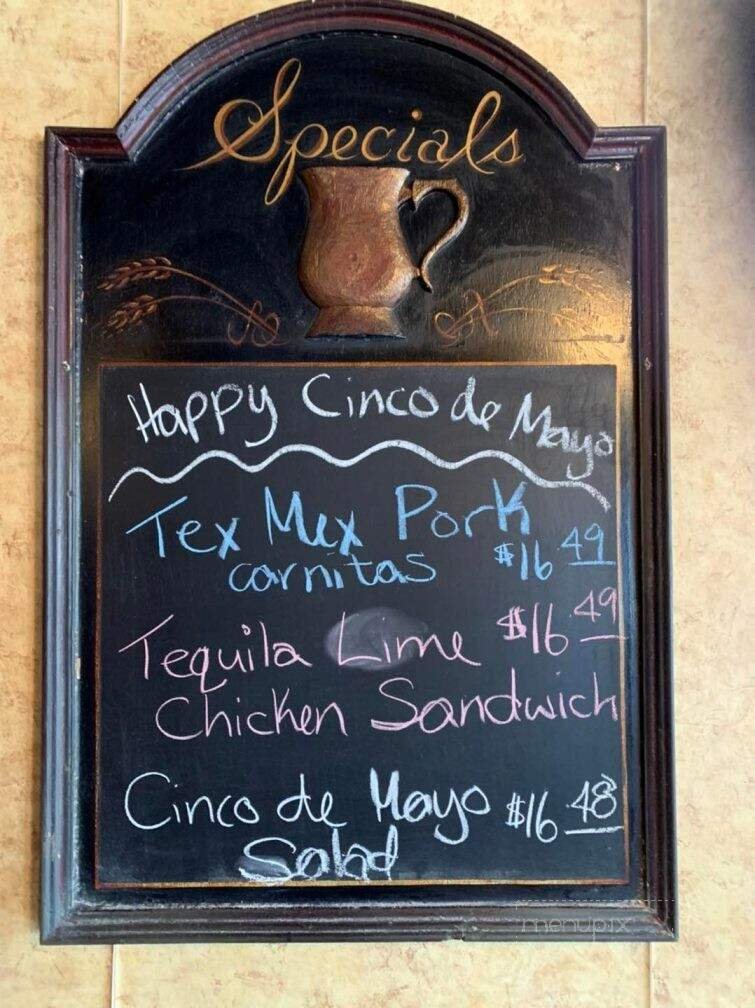 Specials
Happy Cinco de Mayo
Tex Mex Pork
carnitas $16.49
Tequila Lime $16.49
Chicken Sandwich
Cinco de Mayo $16.48
Salad
menupix